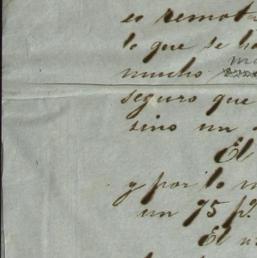 es remot
lo que se ha
mucho
seguro que
sino un
El
y por lo m
un 75 p.
El